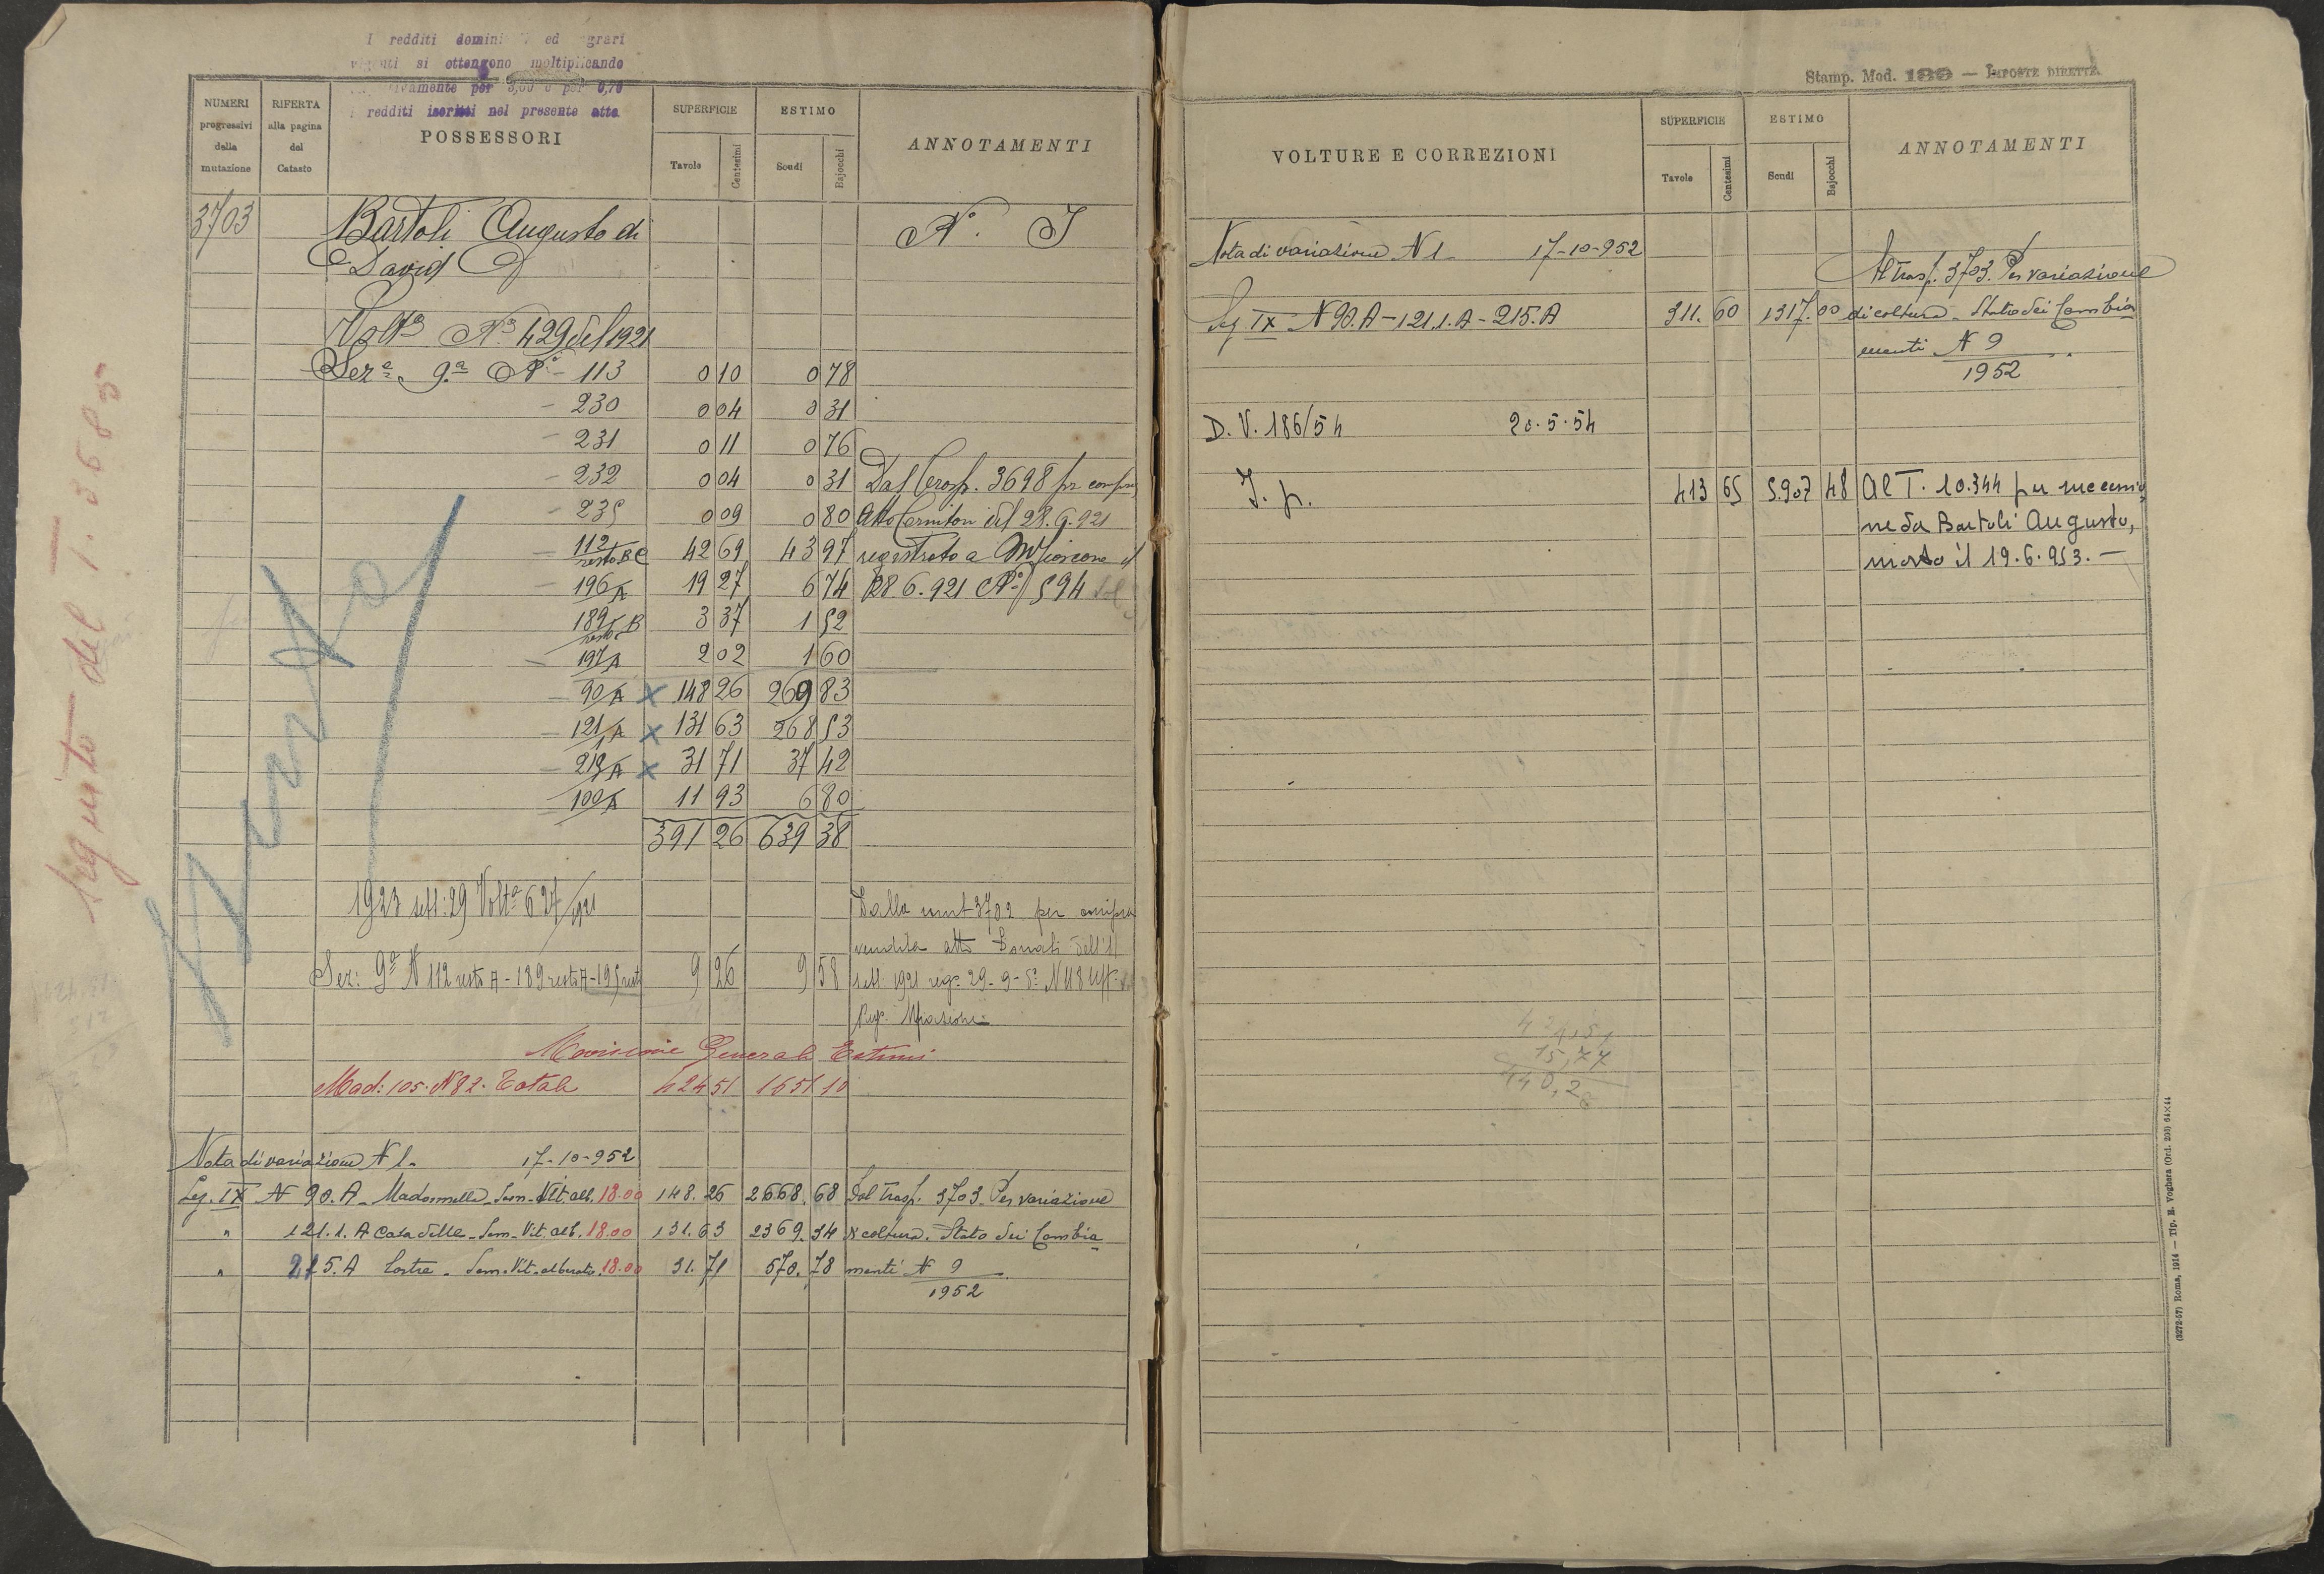 I redditi domini ed grari
si ottengono moltiplicando
per 3,60 e per 0,70
redditi iscritti nel presente atto
NUMERI progressivi della mutazione
RIFERTA alla pagina del Catasto
POSSESSORI
SUPERFICIE
Tavole Centesimi
ESTIMO
Scudi Bajocchi
ANNOTAMENTI
3703 Bartoli Augusto di N.° I
David
Volta N.° 429 del 1921
Sez.e 9.a N.° - 113 0 10 0 78
- 230 0 04 0 31
- 231 0 11 0 76
- 232 0 04 0 31 Dal Trasp. 3698 pr compra
- 235 0 09 0 80 Atto del 28.6.921
- 112 resto BC 42 69 43 97 registrato a il
- 196/A 19 27 6 74 28.6.921 N.° 594
189 resto B 3 37 1 52
- 197/A 2 02 1 60
- 90/A x 148 26 269 83
- 121/1 A x 131 63 268 53
- 215/A x 31 71 37 42
- 100/A 11 93 6 80
391 26 639 38
1923 sett: 29 Volta 627/1921 Dalla 3702 per compra
vendita atto Donati dell'11
Sez: 9a N 112 resto A - 189 resto A - 195 resto 9 26 9 58 sett 1921 reg. 29-9-
Revisione Generale Estimi
Mod: 105. N 82. Totale 424 51 1651 10
Nota di variazione N 1. 17-10-952
Sez. IX N 90.A - Madonnella - Sem. Vit. alb. 18.00 148.26 2668.68 Dal Trasp. 3703 Per variazione
" 121.1.A Casa delle - Sem. Vit. alb. 18.00 131.63 2369.34 di coltura. Stato dei Cambia
" 215.A Costa - Sem. Vit. alberato. 18.00 31.71 570.78 menti N 9
1952
Seguito del T. 3685
Stamp. Mod. 180 — IMPOSTE DIRETTE.
VOLTURE E CORREZIONI
SUPERFICIE
Tavole Centesimi
ESTIMO
Scudi Bajocchi
ANNOTAMENTI
Nota di variazione N 1. 17-10-952
Al Trasp. 3703. Per variazione
Sez. IX N 90.A - 121.1.A - 215.A 311.60 1317.00 di coltura - Stato dei Cambia
menti N 9
1952
D. V. 186/54 20.5.54
I. p. 413 65 5.907 48 Al T. 10.344 per successio
ne da Bartoli Augusto,
morto il 19.6.953. —
424,51
15,77
440,28
(3272-57) Roma, 1914 — Tip. E. Voghera (Ord. 203) 64×44